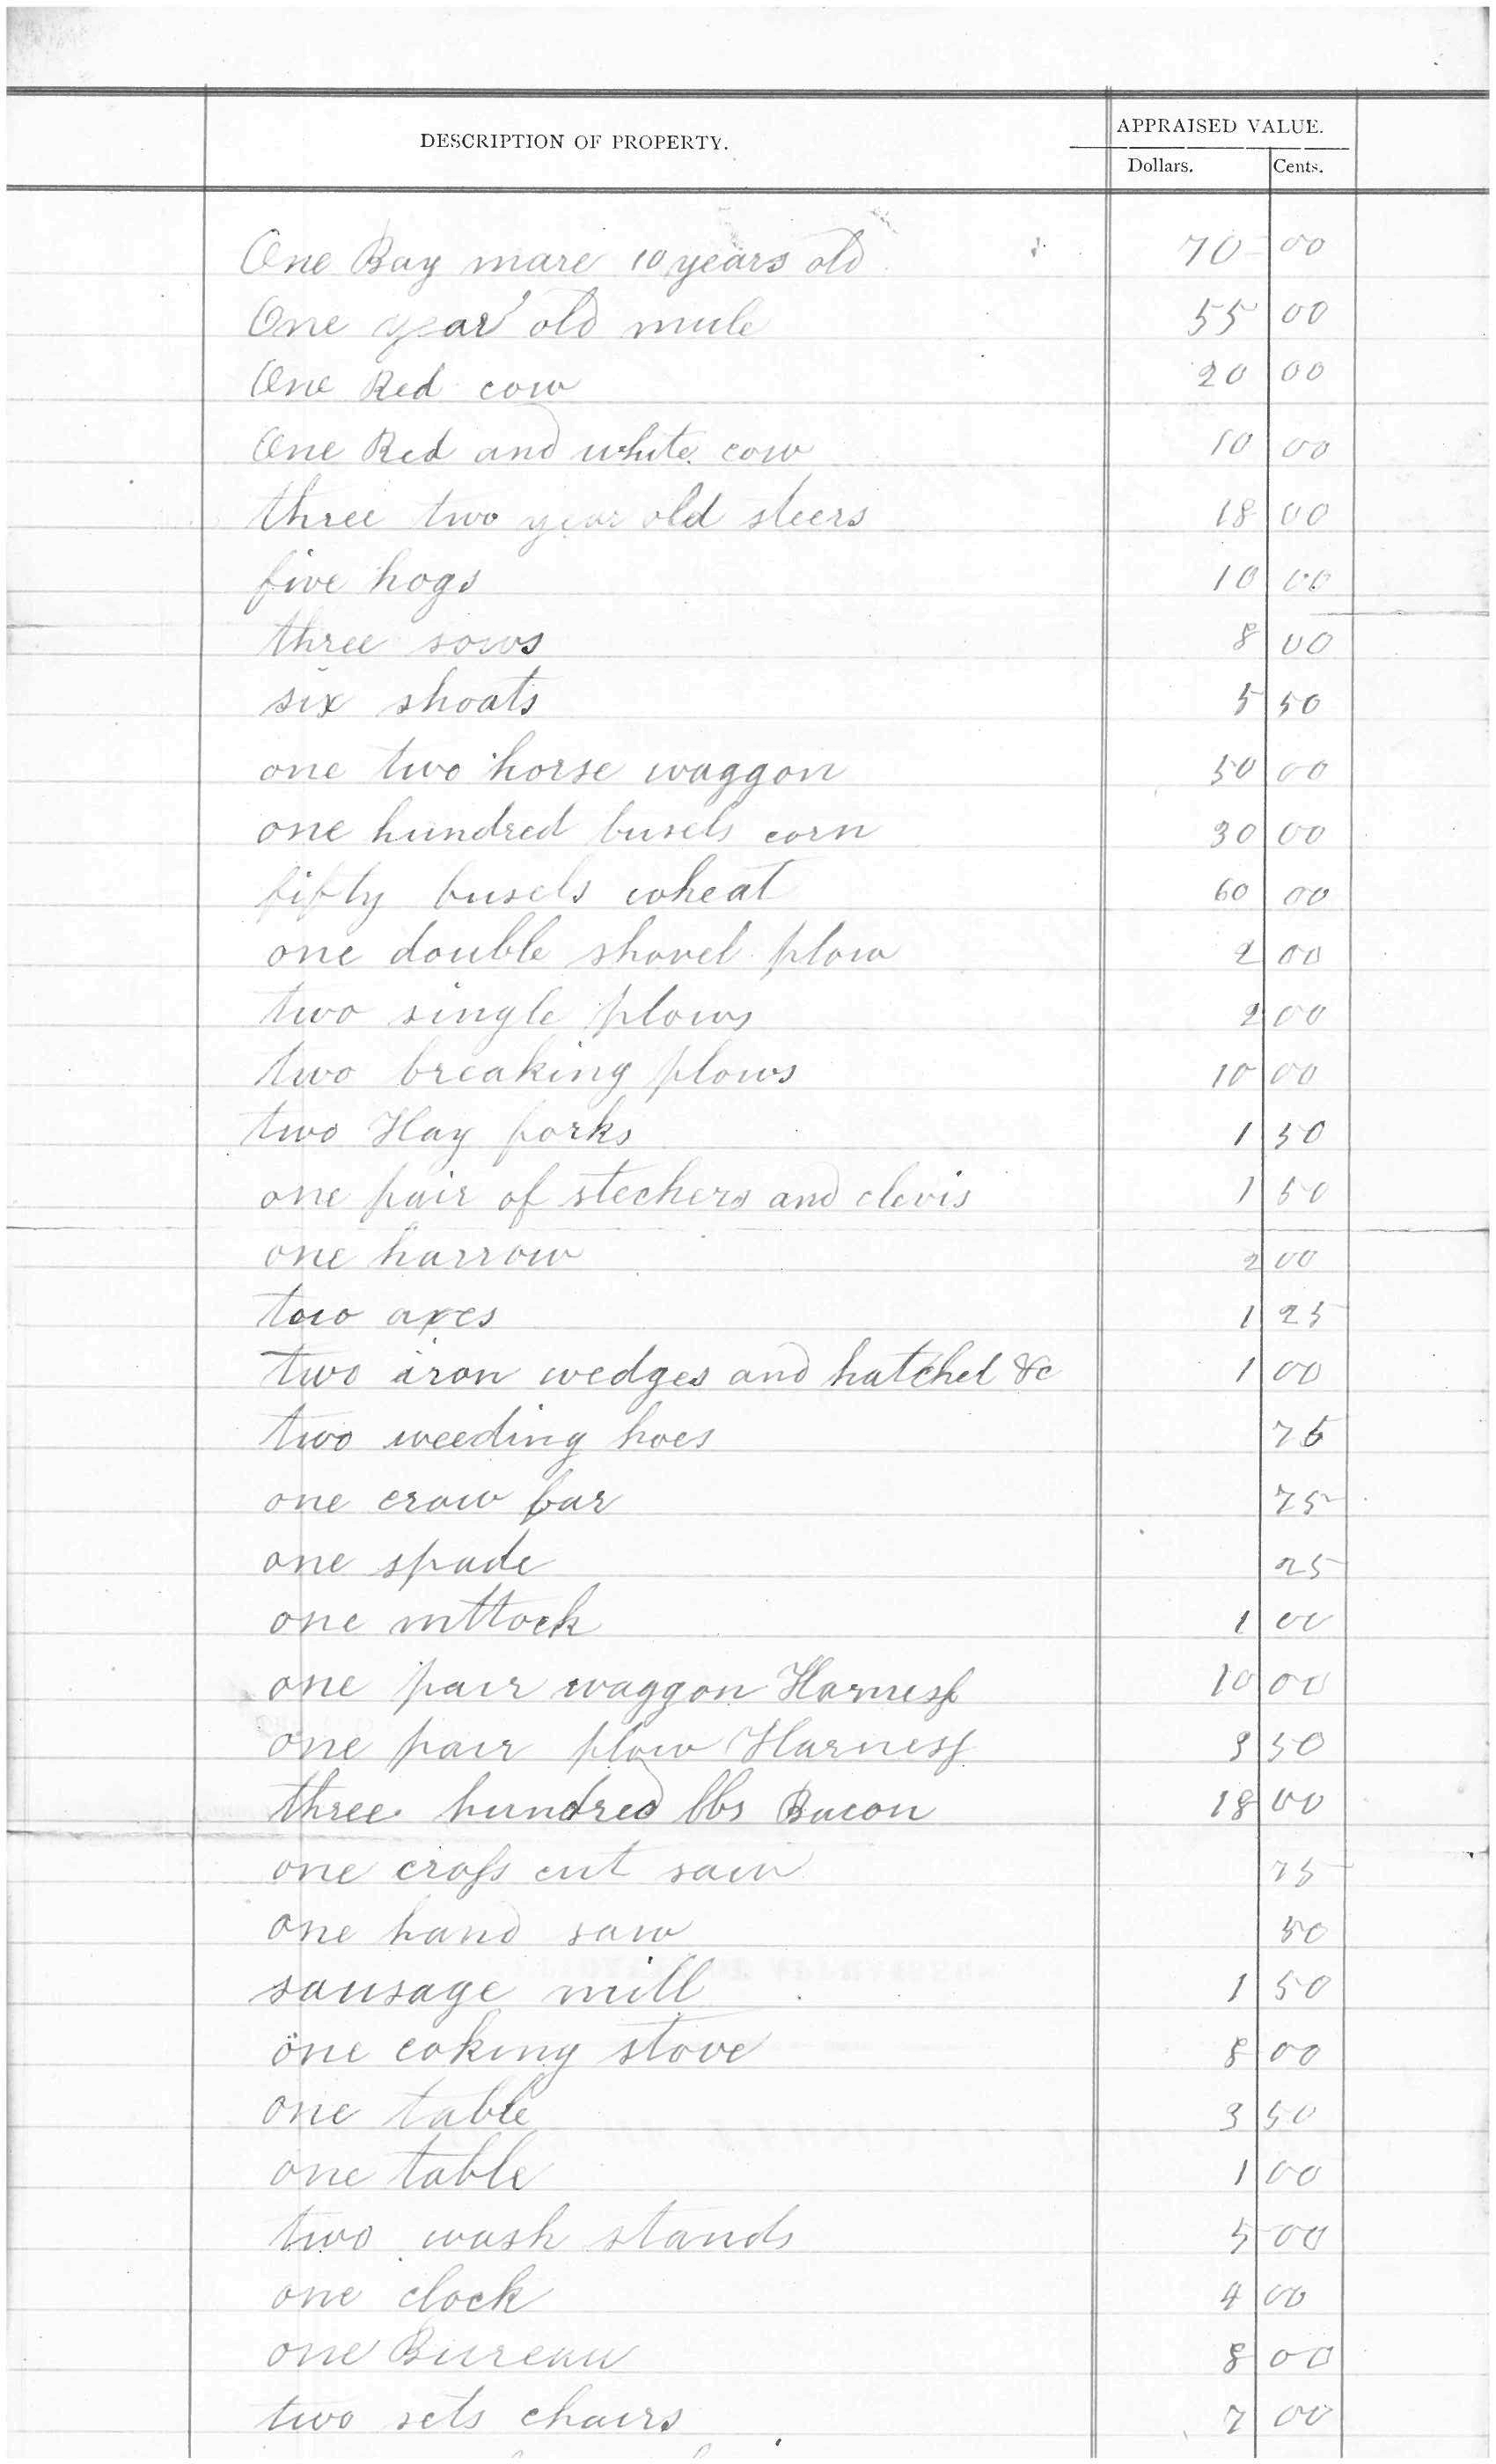 DESCRIPTION OF PROPERTY.
APPRAISED VALUE.
Dollars. Cents.
One Bay mare 10 years old 70 00
One year old mule 55 00
One Red cow 20 00
One Red and white cow 10 00
three two year old steers 18 00
five hogs 10 00
three sows 8 00
six shoats 5 50
one two horse waggon 50 00
one hundred busels corn 30 00
fifty busels wheat 60 00
one double shovel plow 2 00
two single plows 2 00
two breaking plows 10 00
two Hay forks 1 50
one pair of stechers and clevis 1 50
one harrow 2 00
two axes 1 25
two iron wedges and hatchel &c 1 00
two weeding hoes 75
one craw bar 75
one spade 25
one mttock 1 00
one pair waggon Harness 10 00
one pair plow Harness 3 50
three hundred lbs Bacon 18 00
one cross cut saw 75
one hand saw 50
sausage mill 1 50
one coking stove 8 00
one table 3 50
one table 1 00
two wash stands 5 00
one clock 4 00
one Bureau 8 00
two sets chairs 7 00